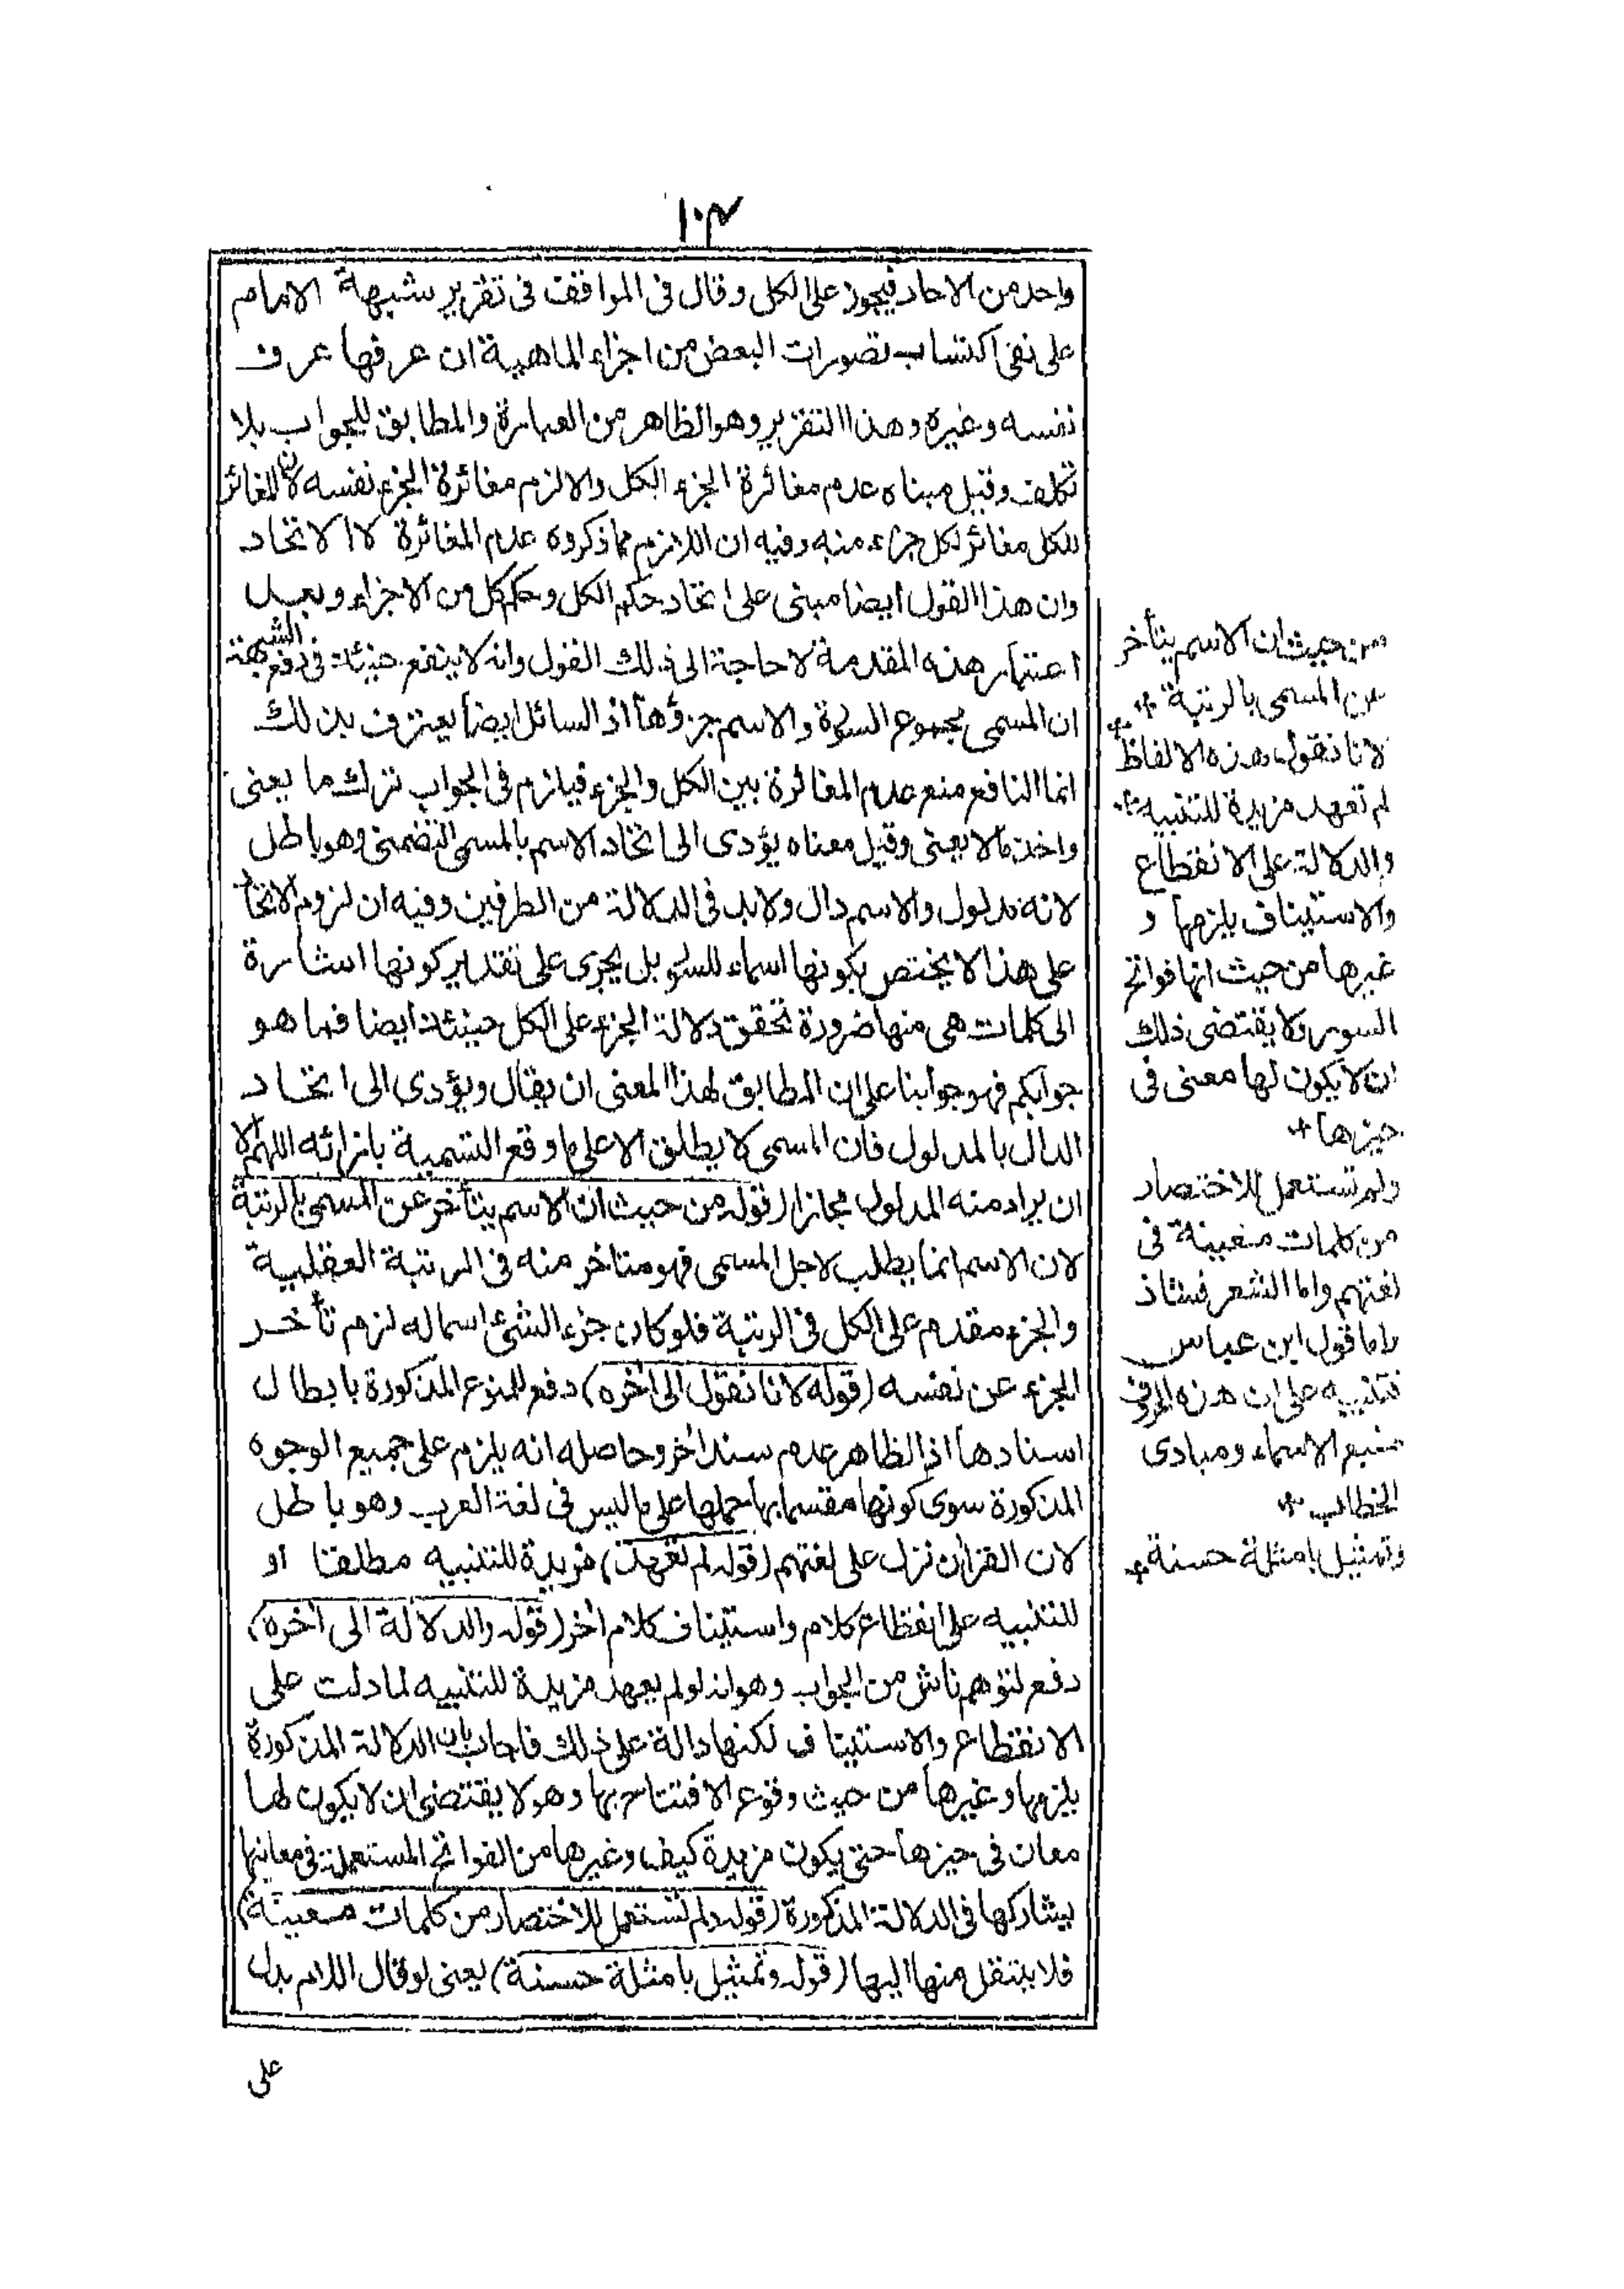 ١٠٣
واحد من الاحاد فيجوز على الكل وقال فى المواقف فى تقرير شبهة الامام
على نفى اكتساب تصورات البعض من اجزاء الماهية ان عرفها عرف
نفسه وغيره وهذا التقرير وهو الظاهر من العبارة والمطابق للجواب بلا
تكلف وقيل مبناه عدم مغائرة الجزء الكل والا لزم مغائرة الجزء نفسه لان المغائر
للكل مغائر لكل جزء منه وفيه ان اللازم مما ذكروه عدم المغائرة لا الاتحاد
وان هذا القول ايضا مبنى على اتحاد حكم الكل وحكم كل من الاجزاء وبعد
اعتبار هذه المقدمة لا حاجة الى ذلك القول وانه لا ينفع حينئذ فى دفع الشبهة
ان المسمى مجموع السورة والاسم جزؤها اذ السائل ايضا يعترف بذلك
انما النافع منع عدم المغائرة بين الكل والجزء فيلزم فى الجواب ترك ما يعنى
واخذ ما لا يعنى وقيل معناه يؤدى الى اتحاد الاسم بالمسمى التضمنى وهو باطل
لانه مدلول والاسم دال ولابد فى الدلالة من الطرفين وفيه ان لزوم الاتحاد
على هذا لا يختص بكونها اسماء للسور بل يجرى على تقدير كونها اشارة
الى كلمات هى منها ضرورة تحقق دلالة الجزء على الكل حينئذ ايضا فما هو
جوابكم فهو جوابنا على ان المطابق لهذا المعنى ان يقال ويؤدى الى اتحاد
الدال بالمدلول فان المسمى لا يطلق الا على ما وقع التسمية بازائه اللهم الا
ان يراد منه المدلول مجازا (قوله من حيث ان الاسم يتأخر عن المسمى بالرتبة
لان الاسم انما يطلب لاجل المسمى فهو متاخر منه فى الرتبة العقلية
والجزء مقدم على الكل فى الرتبة فلو كان جزء الشئ اسما له لزم تأخر
الجزء عن نفسه (قوله لانا نقول الى أخره) دفع للمنوع المذكورة بابطال
اسنادها اذ الظاهر عدم سند أخر وحاصله انه يلزم على جميع الوجوه
المذكورة سوى كونها مقسما بها حملها على ما ليس فى لغة العرب وهو باطل
لان القرأن نزل على لغتهم (قوله لم تعهد) مزيدة للتنبيه مطلقا او
للتنبيه على انقطاع كلام واستيناف كلام أخر (قوله والدلالة الى أخره)
دفع لتوهم ناش من الجواب وهو انه لو لم يعهد مزيدة للتنبيه لما دلت على
الانقطاع والاستيناف لكنها دالة على ذلك فاجاب بان الدلالة المذكورة
يلزمها وغيرها من حيث وقوع الافتتاح بها وهو لا يقتضى ان لا يكون لها
معان فى حيزها حتى يكون مزيدة كيف وغيرها من الفواتح المستعملة فى معانيها
يشاركها فى الدلالة المذكورة (قوله ولم تستعمل للاختصار من كلمات معينة)
فلا ينتقل منها اليها (قوله وتمثيل بامثلة حسنة) يعنى لو قال اللام يدل
على
من حيث ان الاسم يتأخر
عن المسمى بالرتبة
لانا نقول هذه الالفاظ
لم تعهد مزيدة للتنبيه
والدلالة على الانقطاع
والاستيناف يلزمها و
غيرها من حيث انها فواتح
السور ولا يقتضى ذلك
ان لا يكون لها معنى فى
حيزها
ولم تستعمل للاختصار
من كلمات معينة فى
لغتهم واما الشعر فشاذ
واما قول ابن عباس
فتنبيه على ان هذه الحروف
منبع الاسماء ومبادى
الخطاب
وتمثيل بامثلة حسنة